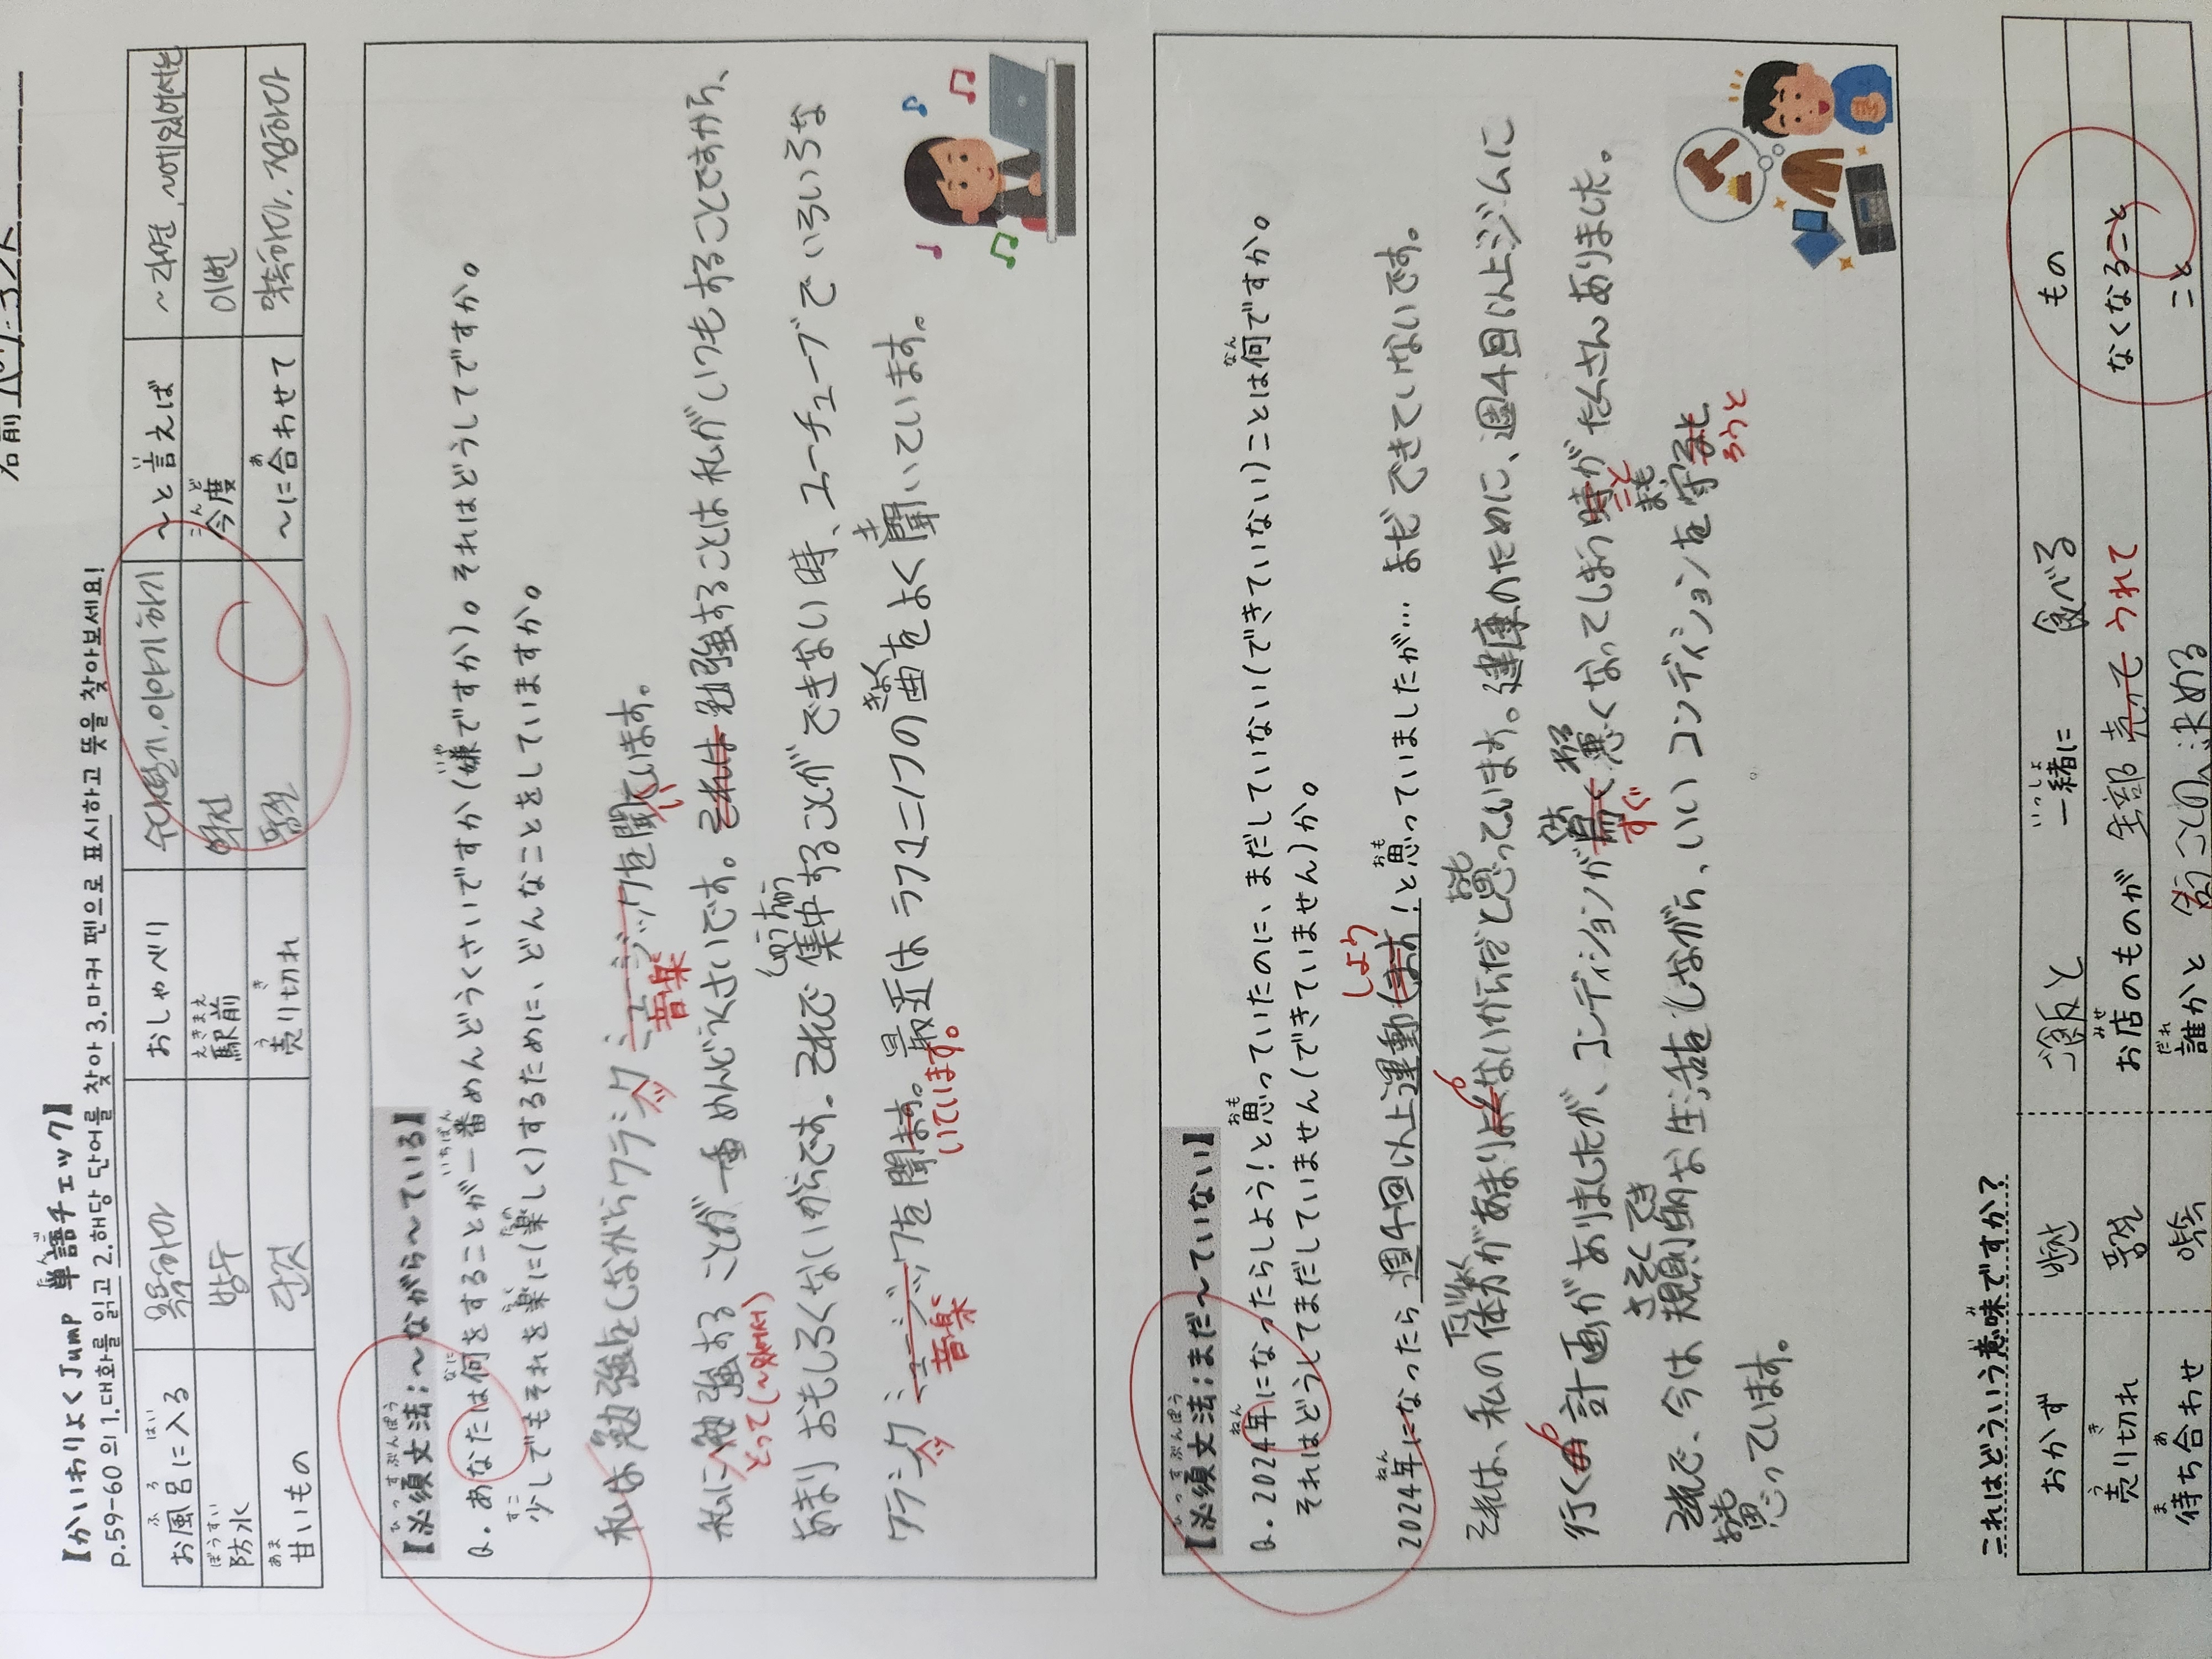 名前
【かいわりょく Jump 単語チェック】
p.59-60 의 1.대화를 읽고 2.해당 단어를 찾아 3.마커 펜으로 표시하고 뜻을 찾아보세요!
お風呂に入る 목욕하다 おしゃべり 수다떨기, 이야기하기 ～と言えば ～라면, ~에 있어서는
防水 방수 駅前 역전 今度 이번
甘いもの 단것 売り切れ 품절 ～に合わせて 약속하다, 정하다
【必須文法：～ながら～ている】
Q. あなたは何をすることが一番めんどうくさいですか(嫌ですか)。それはどうしてですか。
少しでもそれを楽に(楽しく)するために、どんなことをしていますか。
私は勉強をしながらクラシク ミュージックを聞ています。
ッ 音楽 い
私に勉強する ことが一番めんどうくさいです。それは勉強することは私がいつもすることですから、
とって(～에게)
あまりおもしろくないからです。それで集中することができない時、ユーチューブでいろいろな
クラシク ミュージックを聞ます。最近は ラフマニノフの曲をよく聞いています。
ッ 音楽 いています。
【必須文法：まだ～ていない】
Q. 2024年になったらしよう！と思っていたのに、まだしていない(できていない)ことは何ですか。
それはどうしてまだしていません(できていません)か。
しよう
2024年になったら 週4回以上運動します！と思っていましたが… まだできていないです。
それは、私の体力があまりよくないからだと思っています。健康のために、週4回以上ジムに
行く計画がありましたが、コンディションが悪くなってしまう時がたくさんありました。
すぐ こと
それで、今は規則的な生活をしながら、いいコンディションを守る
ろうと
思っています。
これはどういう意味ですか？
おかず 반찬 ご飯と 一緒に 食べる もの
売り切れ 품절 お店のものが 全部 売って うれて なくなること
待ち合わせ 약속 誰かと 決める こと